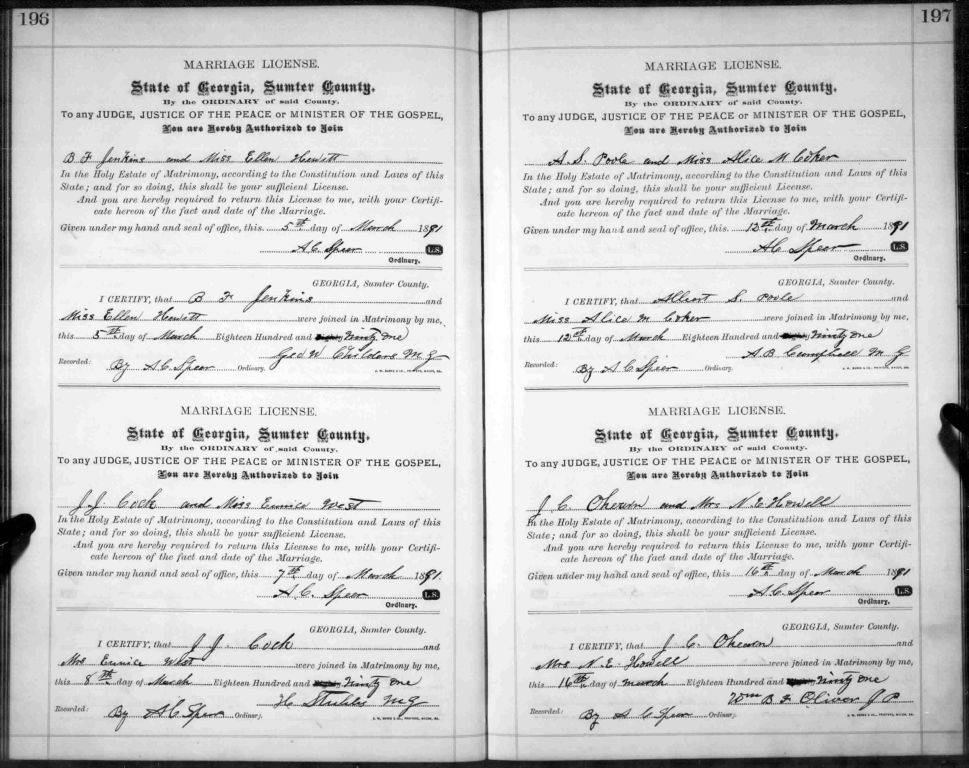 196
MARRIAGE LICENSE.
State of Georgia, Sumter County.
By the ORDINARY of said County.
To any JUDGE, JUSTICE OF THE PEACE or MINISTER OF THE GOSPEL,
You are Hereby Authorized to Join
B F Jenkins and Miss Ellen Hewitt
In the Holy Estate of Matrimony, according to the Constitution and Laws of this
State; and for so doing, this shall be your sufficient License.
And you are hereby required to return this License to me, with your Certifi-
cate hereon of the fact and date of the Marriage.
Given under my hand and seal of office, this 5th day of March 1891
A C Speer L.S.
Ordinary.
GEORGIA, Sumter County.
I CERTIFY, that B F Jenkins and
Miss Ellen Hewitt were joined in Matrimony by me,
this 5th day of March Eighteen Hundred and Ninety One
Geo W Childers M G
Recorded: By A C Speer Ordinary.
MARRIAGE LICENSE.
State of Georgia, Sumter County.
By the ORDINARY of said County.
To any JUDGE, JUSTICE OF THE PEACE or MINISTER OF THE GOSPEL,
You are Hereby Authorized to Join
J. J. Cock and Miss Eunice West
In the Holy Estate of Matrimony, according to the Constitution and Laws of this
State; and for so doing, this shall be your sufficient License.
And you are hereby required to return this License to me, with your Certifi-
cate hereon of the fact and date of the Marriage.
Given under my hand and seal of office, this 7th day of March 1891.
A. C. Speer L.S.
Ordinary.
GEORGIA, Sumter County.
I CERTIFY, that J J. Cock and
Mrs Eunice West were joined in Matrimony by me,
this 8th day of March Eighteen Hundred and Ninety One
H Stubbs M G
Recorded: By A C Speer Ordinary.
197
MARRIAGE LICENSE.
State of Georgia, Sumter County.
By the ORDINARY of said County.
To any JUDGE, JUSTICE OF THE PEACE or MINISTER OF THE GOSPEL,
You are Hereby Authorized to Join
A. S. Poole and Miss Alice M Coker
In the Holy Estate of Matrimony, according to the Constitution and Laws of this
State; and for so doing, this shall be your sufficient License.
And you are hereby required to return this License to me, with your Certifi-
cate hereon of the fact and date of the Marriage.
Given under my hand and seal of office, this 12th day of March 1891
A C Speer L.S.
Ordinary.
GEORGIA, Sumter County.
I CERTIFY, that S. Poole and
Miss Alice M Coker were joined in Matrimony by me,
this 12th day of March Eighteen Hundred and Ninety One
A B Campbell M G
Recorded: By A C Speer Ordinary.
MARRIAGE LICENSE.
State of Georgia, Sumter County.
By the ORDINARY of said County.
To any JUDGE, JUSTICE OF THE PEACE or MINISTER OF THE GOSPEL,
You are Hereby Authorized to Join
J C and Mrs N. E. Howell
In the Holy Estate of Matrimony, according to the Constitution and Laws of this
State; and for so doing, this shall be your sufficient License.
And you are hereby required to return this License to me, with your Certifi-
cate hereon of the fact and date of the Marriage.
Given under my hand and seal of office, this 16th day of March 1891
A C Speer L.S.
Ordinary.
GEORGIA, Sumter County.
I CERTIFY, that J. C. and
Mrs N. E. Howell were joined in Matrimony by me,
this 16th day of March Eighteen Hundred and Ninety One
Wm B F Oliver J P
Recorded: By A C Speer Ordinary.